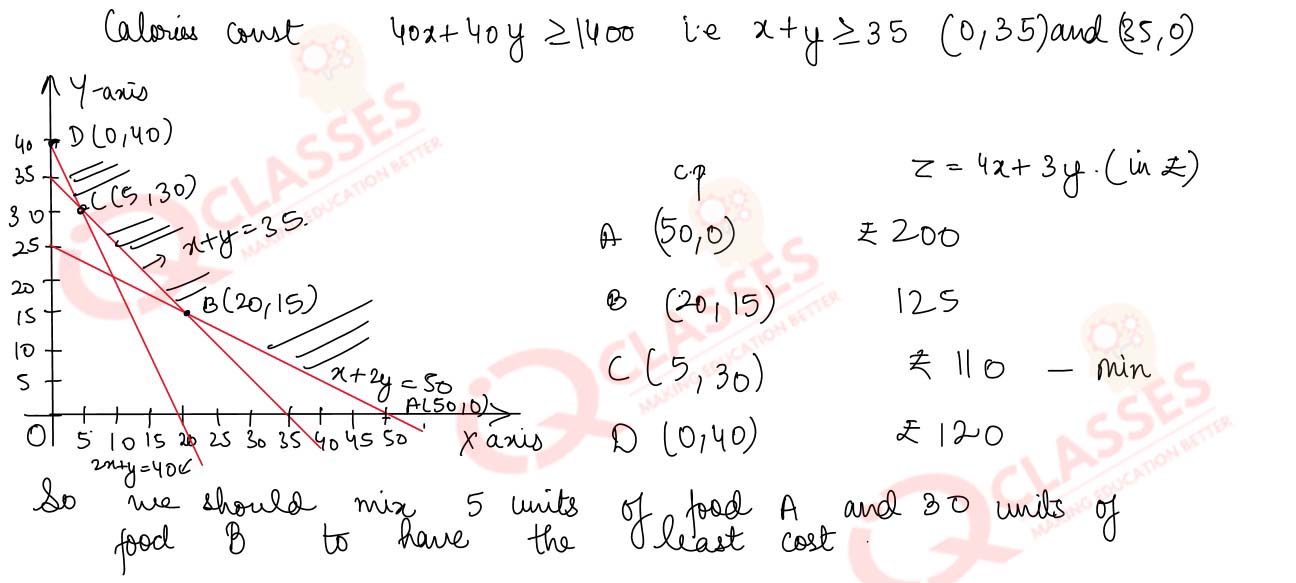 Calories const 40x+40y ≥1400 i.e x+y ≥35 (0,35) and (35,0)
Y-axis
40 D(0,40)
35
30 C(5,30)
x+y=35.
25
20
15 B(20,15)
10
5
x+2y=50
A(50,0)
0 5 10 15 20 25 30 35 40 45 50 X axis
2x+y=40
c.p z = 4x+3y. (in ₹)
A (50,0) ₹ 200
B (20,15) 125
C (5,30) ₹ 110 - min
D (0,40) ₹ 120
So we should mix 5 units of food A and 30 units of
food B to have the least cost.
IQ CLASSES
MAKING EDUCATION BETTER
IQ CLASSES
MAKING EDUCATION BETTER
IQ CLASSES
MAKING EDUCATION BETTER